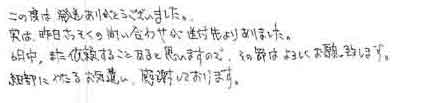 この度は 発送ありがとうございました。
実は、昨日もそくの問い合わせが送付先よりありました。
6月中、また依頼することあると思いますので、その節はよろしくお願い致します。
細部にわたるお気遣い、感謝しております。